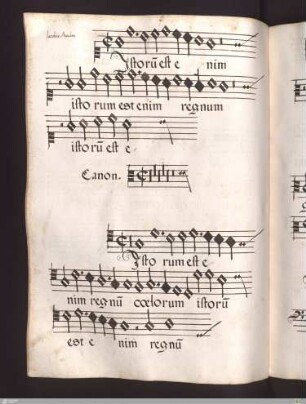 ystorũ est e nim
isto rum est enim regnum
istorũ est e
Canon.
ysto rum est e
nim regnũ cœlorum istorũ
est e nim regnũ